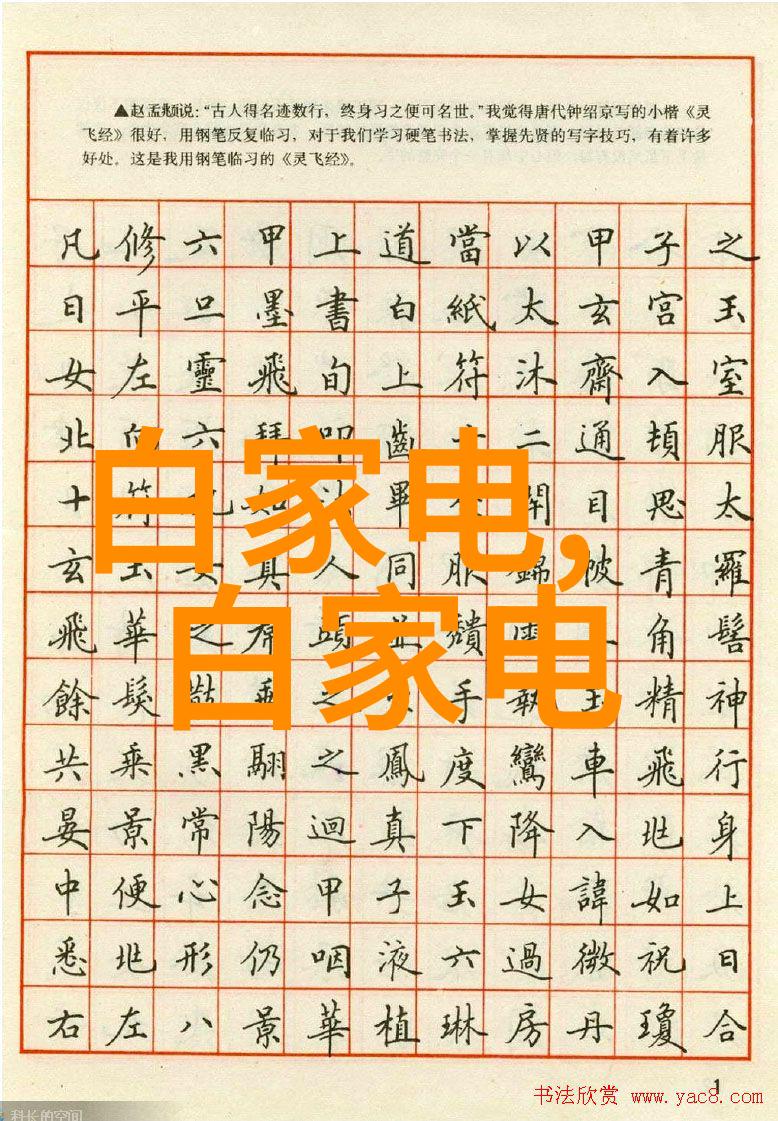 ▲赵孟頫说：“古人得名迹数行，终身习之便可名世。”我觉得唐代钟绍京写的小楷《灵
飞经》很好，用钢笔反复临习，对于我们学习硬笔书法，掌握先贤的写字技巧，有着许多
好处。这是我用钢笔临习的《灵飞经》。
凡修六甲上道當以甲子之
日平旦墨書白紙太玄宮玉
女左靈飛旬上符沐齋入室
北向六拜叩齒十二通頓服
十符如法畢開目思太
玄玉女真人同服錦帔青羅
飛華之帬頭並頹雲角髻
餘髮散垂之手執玉精神
共乘黑翮之鳳度鸞車飛行
晏景常陽迴真下降入兆身
中便心念甲子玉女諱如上
悉兆形仍咽液六過微祝曰
右左八景華植琳房丹瓊合
白家电，
白家电
1
书法欣赏 www.yac8.com
科长的空间